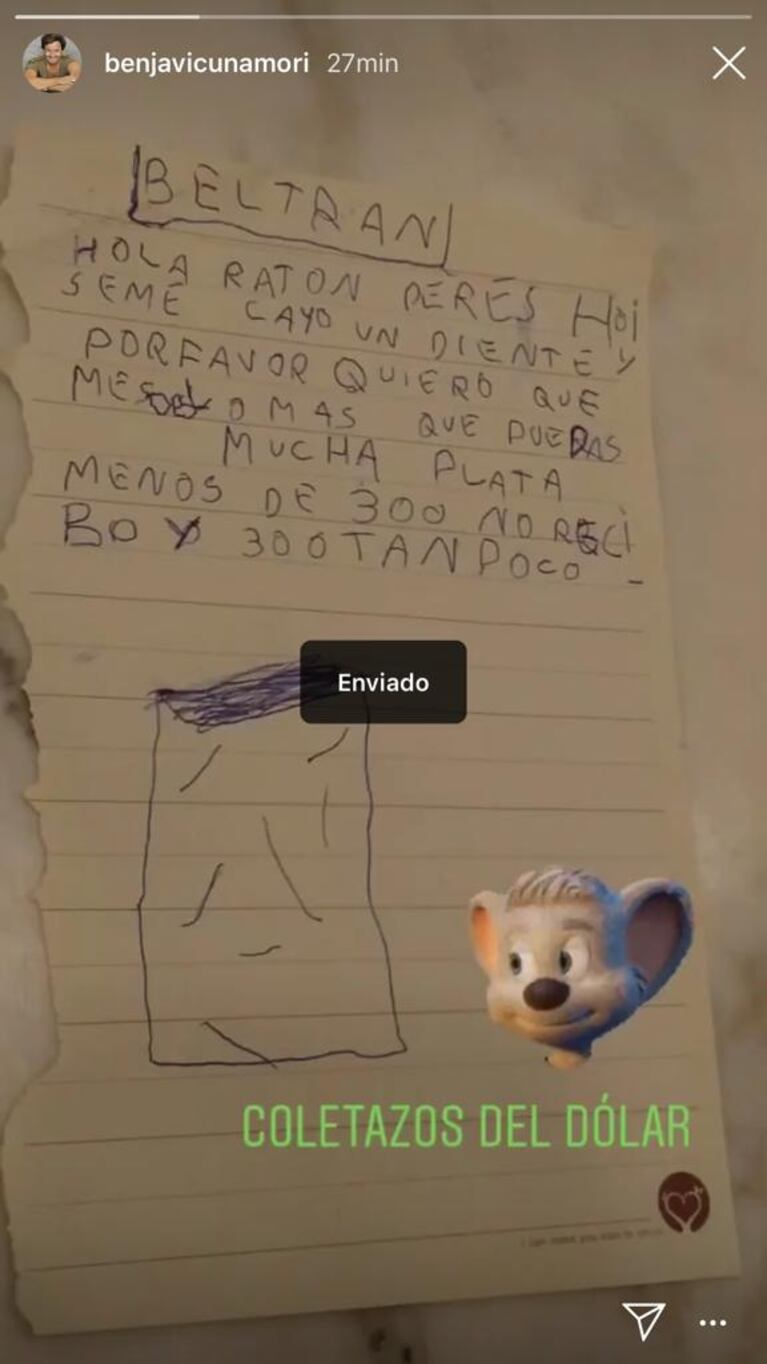 benjavicunamori 27min
BELTRAN
HOLA RATON PERES HOi
SEME CAYO UN DIENTE Y
PORFAVOR QUIERO QUE
MES O MAS QUE PUEDAS
MUCHA PLATA
MENOS DE 300 NO RECI
BO Y 300 TANPOCO
Enviado
COLETAZOS DEL DÓLAR